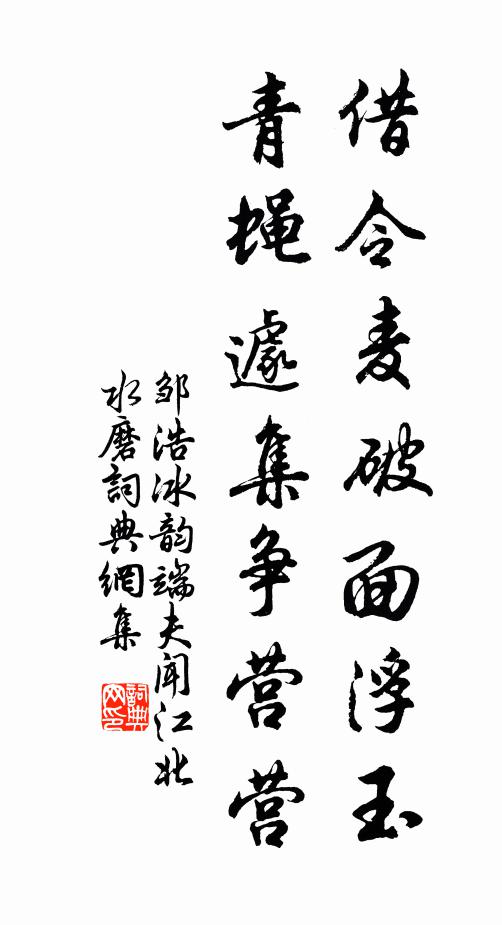 借令麦破面浮玉
青蝇遽集争营营
邹浩冰韵端夫闻江北
水磨詞典網集
詞典
网印